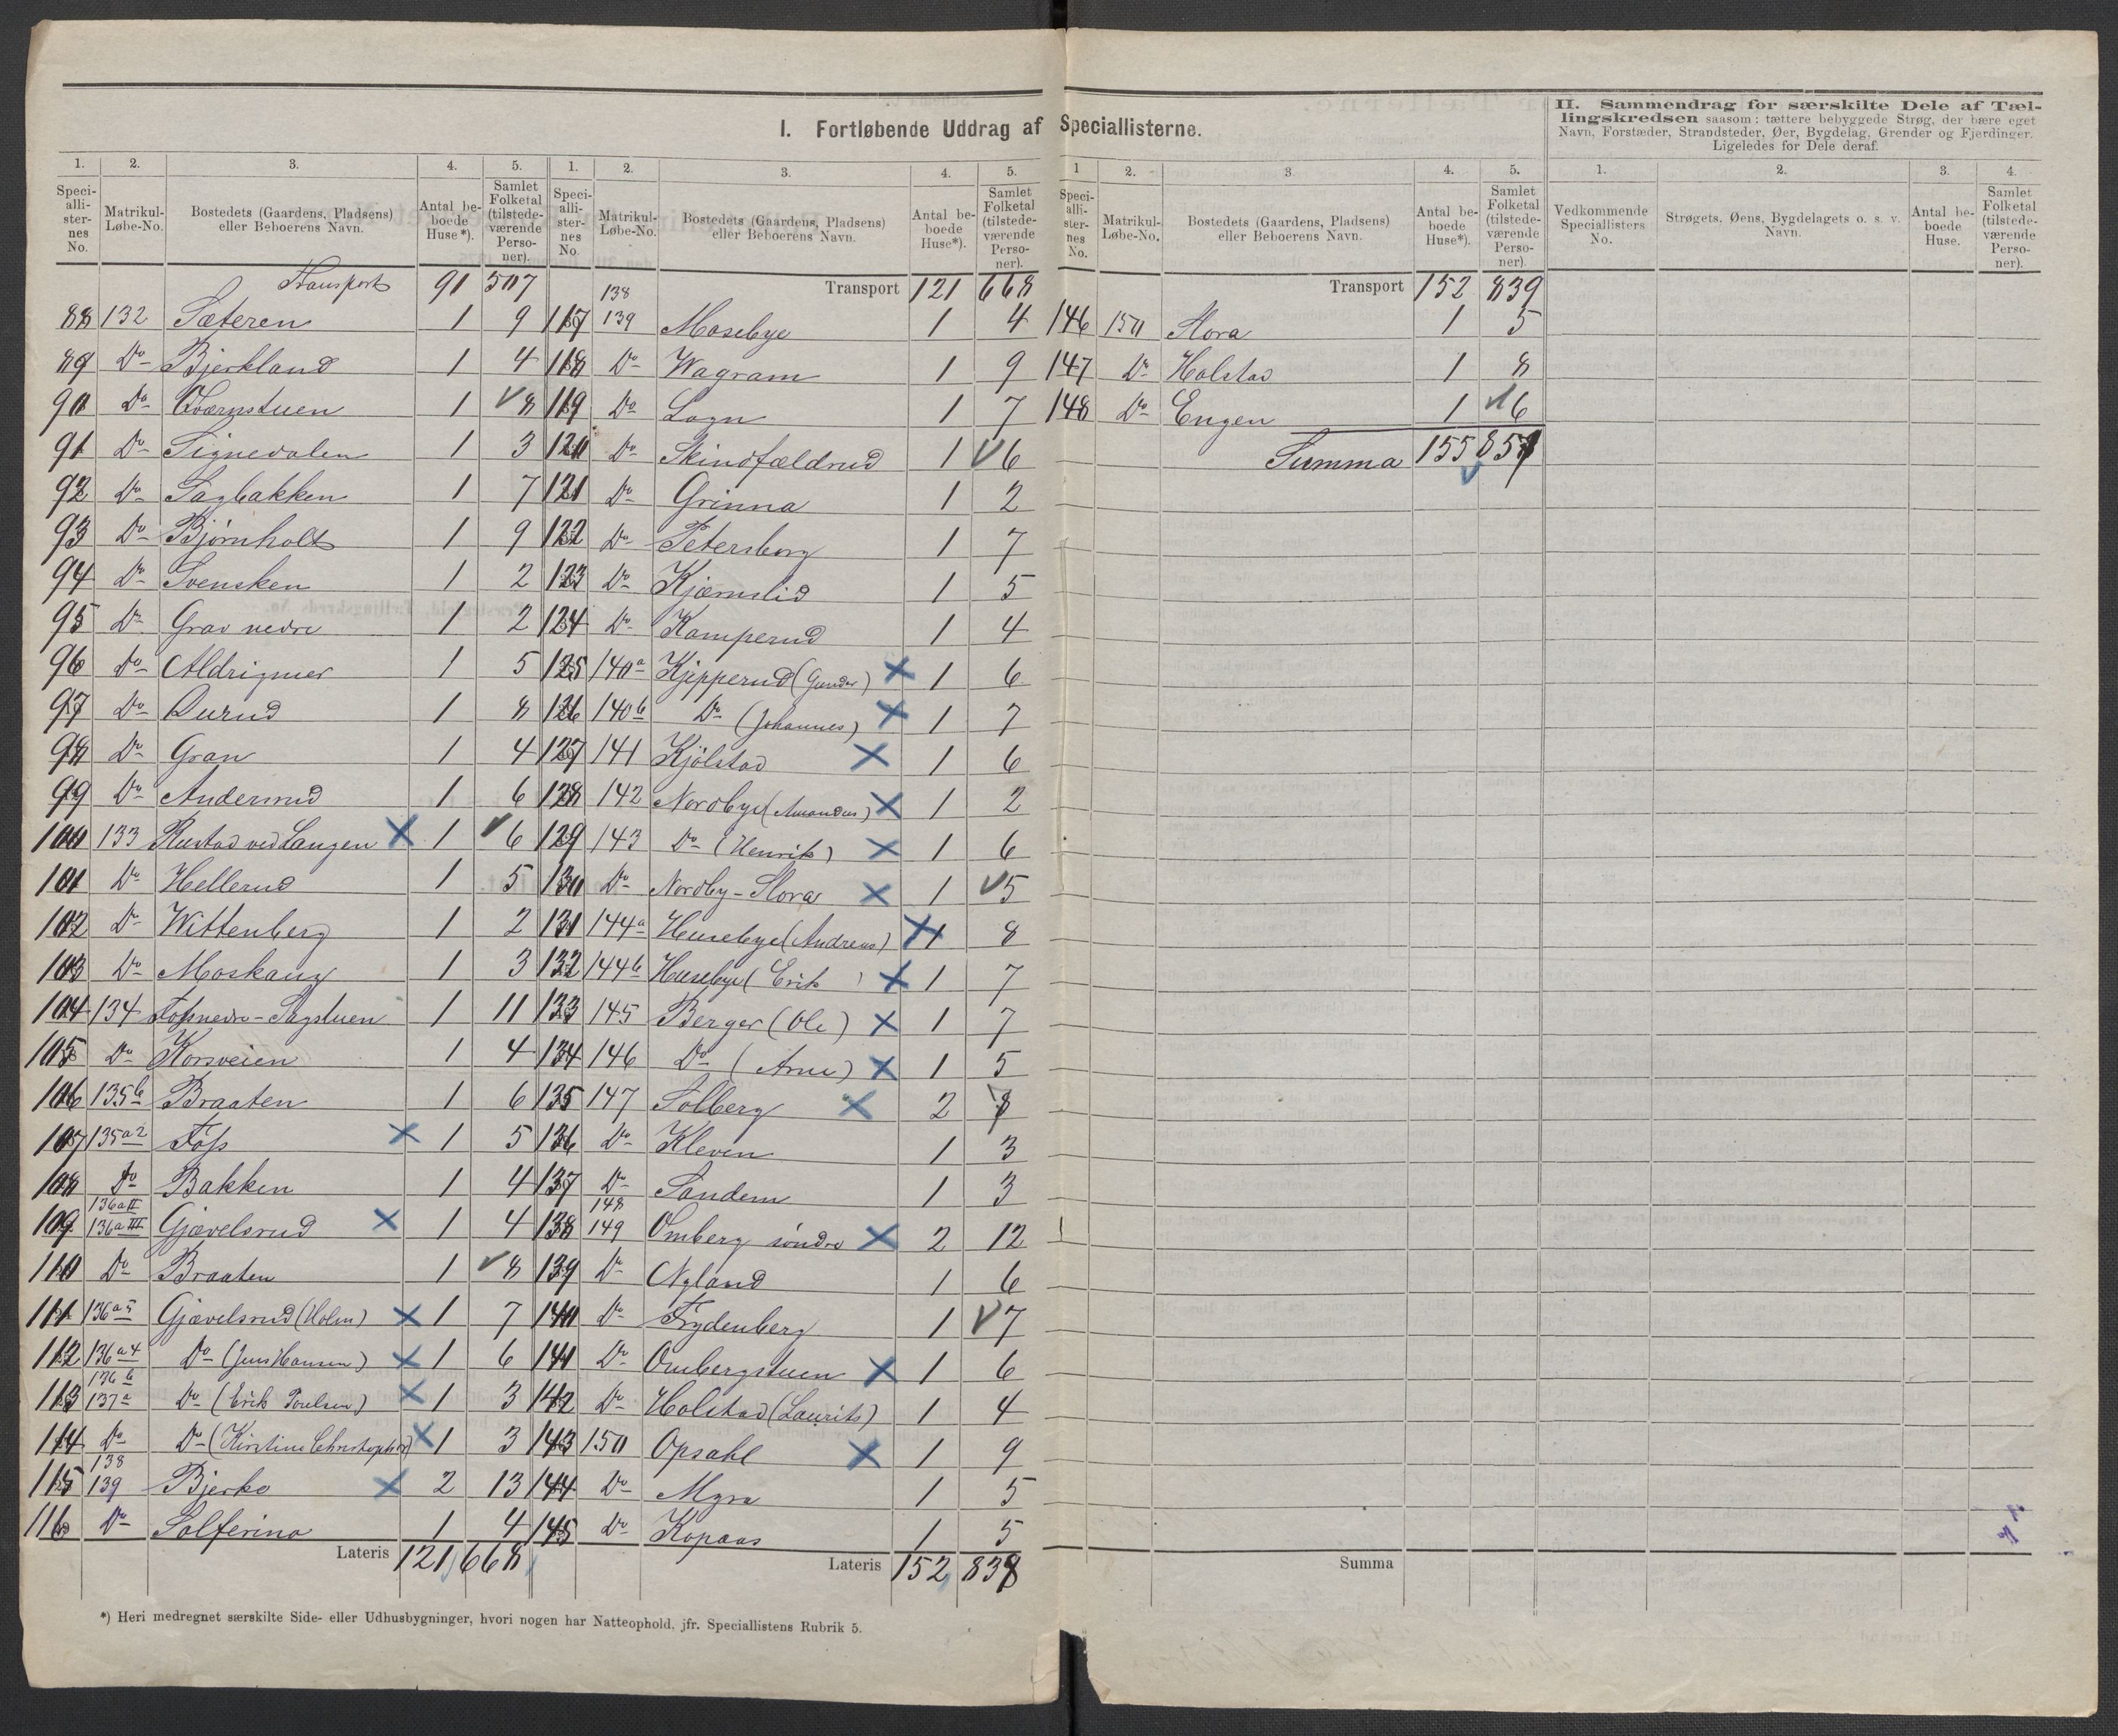 I. Fortløbende Uddrag af Speciallisterne.
II. Sammendrag for særskilte Dele af Tæl-
lingskredsen saasom: tættere bebyggede Strøg, der bære eget
Navn, Forstæder, Strandsteder, Øer, Bygdelag, Grender og Fjerdinger.
Ligeledes for Dele deraf.
1. 2. 3. 4. 5.
Speci-alli-ster-nes No. Matrikul-Løbe-No. Bostedets (Gaardens, Pladsens) eller Beboerens Navn. Antal be-boede Huse*). Samlet Folketal (tilstede-værende Perso-ner).
Transport 91 507
88 132 Sæteren 1 9
89 Do Bjerkland 1 4
90 Do Qværnstuen 1 8
91 Do Signedalen 1 3
92 Do Sagbakken 1 7
93 Do Bjørnholt 1 9
94 Do Svensken 1 2
95 Do Grav nedre 1 2
96 Do Aldrigmer 1 5
97 Do Durud 1 8
98 Do Gran 1 4
99 Do Anderrud 1 6
100 133 Rustad ved Langen 1 6
101 Do Hellerud 1 5
102 Do Wittenberg 1 2
103 Do Moskaug 1 3
104 134 Fossnedre-Sagstuen 1 11
105 Do Korsveien 1 4
106 135b Braaten 1 6
107 135a2 Foss 1 5
108 Do Bakken 1 4
109 136aII 136aIII Gjævelsrud 1 4
110 Do Braaten 1 8
111 136a5 Gjævelsrud (Holm) 1 7
112 136a4 Do (Jens Hansen) 1 6
113 136b 137a Do (Erik Poulsen) 1 3
114 Do Do (Kirstine Christophers) 1 3
115 138 139 Bjerke 2 13
116 Do Solferino 1 4
Lateris 121 668
1. 2. 3. 4. 5.
Speci-alli-ster-nes No. Matrikul-Løbe-No. Bostedets (Gaardens, Pladsens) eller Beboerens Navn. Antal be-boede Huse*). Samlet Folketal (tilstede-værende Perso-ner).
Transport 121 668
117 138 139 Mosebye 1 4
118 Do Wagram 1 9
119 Do Logn 1 7
120 Do Skindfældrud 1 6
121 Do Grinna 1 2
122 Do Petersborg 1 7
123 Do Kjærnslid 1 5
124 Do Kamperud 1 4
125 140a Kjepperud (Gunder) 1 6
126 140b Do (Johannes) 1 7
127 141 Kjölstad 1 6
128 142 Nordbye (Amandus) 1 2
129 143 Do (Henrik) 1 6
130 Do Nordby-Slora 1 5
131 144a Husebye (Andreas) 1 8
132 144b Husebye (Erik) 1 7
133 145 Berger (Ole) 1 7
134 146 Do (Arne) 1 5
135 147 Solberg 2 8
136 Do Kleven 1 3
137 Do Sandem 1 3
138 148 149 Omberg söndre 2 12
139 Do Nyland 1 6
140 Do Frydenberg 1 7
141 Do Ombergstuen 1 6
142 Do Holstad (Laurits) 1 4
143 150 Opsahl 1 9
144 Do Myra 1 5
145 Do Kopaas 1 5
Lateris 152 839
1 2. 3 4. 5.
Speci-alli-ster-nes No. Matrikul-Løbe-No. Bostedets (Gaardens, Pladsens) eller Beboerens Navn. Antal be-boede Huse*). Samlet Folketal (tilstede-værende Perso-ner).
Transport 152 839
146 150 Slora 1 5
147 Do Holstad 1 8
148 Do Engen 1 6
Summa 155 857
Summa
1. 2. 3. 4.
Vedkommende Speciallisters No. Strøgets, Øens, Bygdelagets o. s. v. Navn. Antal be-boede Huse. Samlet Folketal (tilstede-værende Perso-ner).
*) Heri medregnet særskilte Side- eller Udhusbygninger, hvori nogen har Natteophold, jfr. Speciallistens Rubrik 5.